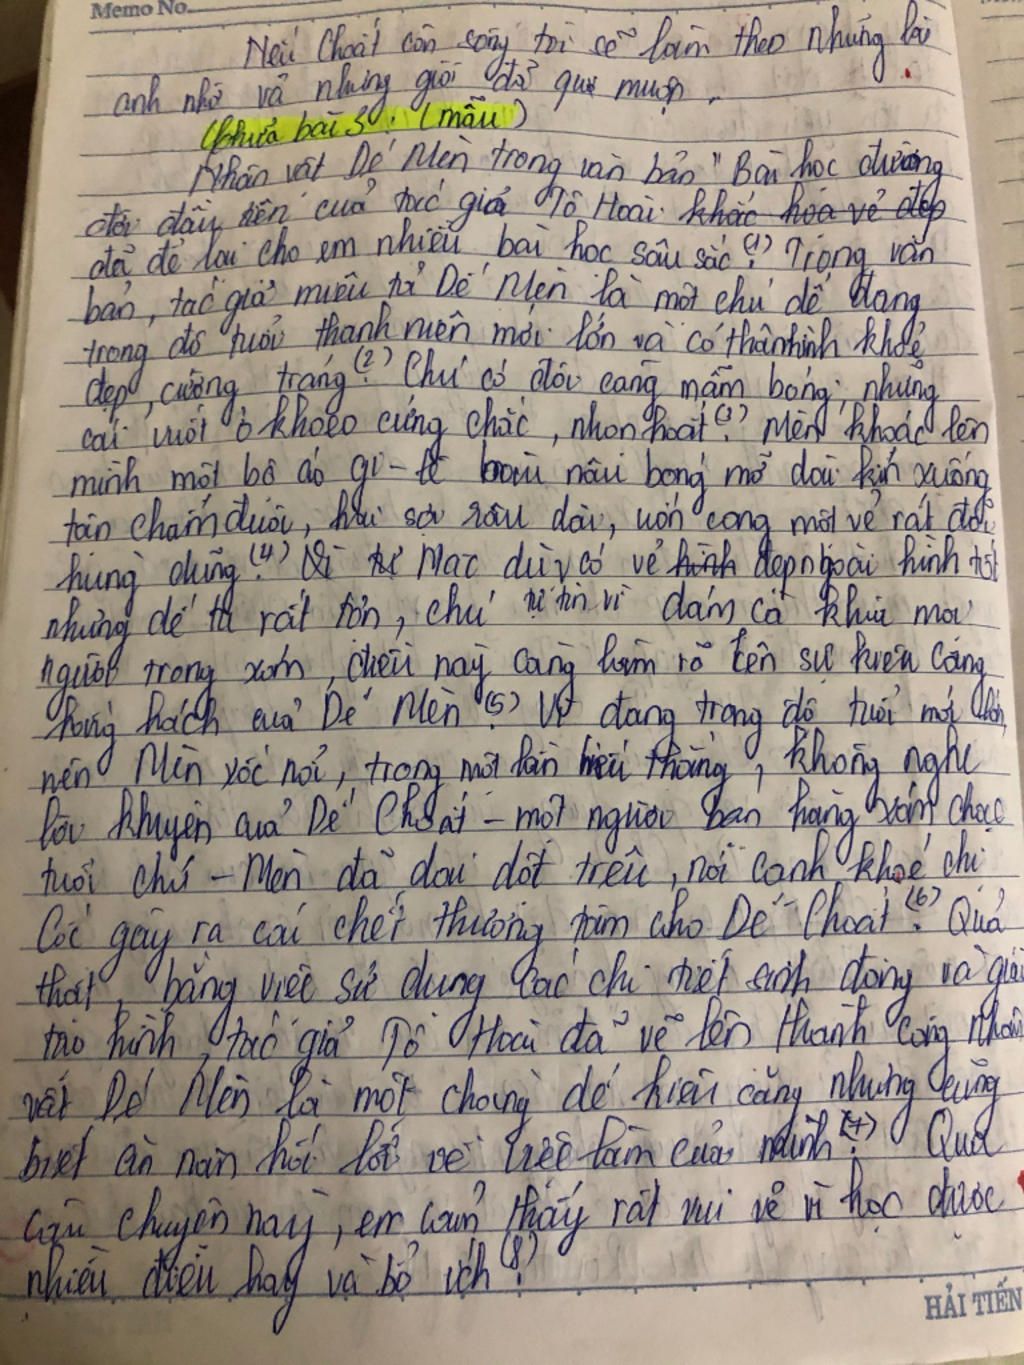 Memo No.
Nếu Choắt còn sống tôi sẽ làm theo những lời
anh nhờ và nhưng giờ đã quá muộn.
Chữa bài 5: (mẫu)
Nhân vật Dế Mèn trong văn bản "Bài học đường
đời đầu tiên của tác giả Tô Hoài khắc họa vẻ đẹp
đã để lại cho em nhiều bài học sâu sắc (1). Trong văn
bản, tác giả miêu tả Dế Mèn là một chú dế đang
trong độ tuổi thanh niên mới lớn và có thân hình khoẻ
đẹp, cường tráng (2). Chú có đôi càng mẫm bóng, những
cái vuốt ở khoeo cứng chắc, nhọn hoắt (3). Mèn khoác lên
mình một bộ áo gi-lê nâu bóng mỡ dài kín xuống
tận chấm đuôi, hai sợi râu dài, uốn cong một vẻ rất đỗi
hùng dũng (4). Mặc dù có vẻ hình đẹp ngoài hình tốt
nhưng dế ta rất tợn, chú tự tin vì dám cà khịa mọi
người trong xóm, điều này càng làm rõ lên sự kiêu căng
hống hách của Dế Mèn (5). Vì đang trong độ tuổi mới lớn,
nên Mèn xốc nổi, trong một lần hiếu thắng, không nghe
lời khuyên của Dế Choắt - một người bạn hàng xóm chạc
tuổi chú - Mèn đã dại dột trêu, nói cạnh khoé chị
Cốc gây ra cái chết thương tâm cho Dế Choắt (6). Quả
thật, bằng việc sử dụng các chi tiết sinh động và giàu
tạo hình, tác giả Tô Hoài đã vẽ lên thành công nhân
vật Dế Mèn là một chàng dế kiêu căng nhưng cũng
biết ăn năn hối lỗi về việc làm của mình (7). Qua
câu chuyện này, em cảm thấy rất vui vẻ vì học được
nhiều điều hay và bổ ích (8).
HẢI TIẾN